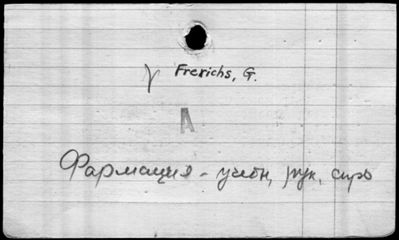 Frerichs, G.
A
Фармация - учебн, рук, спр